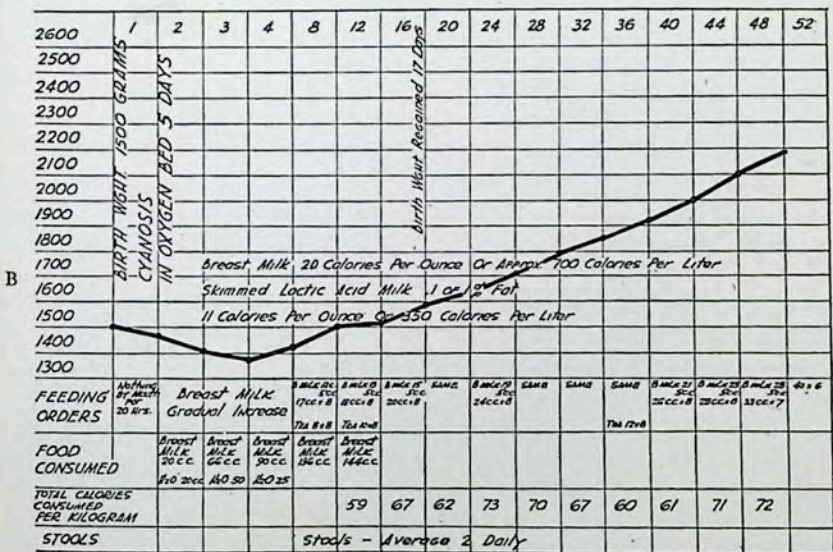 1 2 3 4 8 12 16 20 24 28 32 36 40 44 48 52
2600
2500
2400
2300
2200
2100
2000
1900
1800
1700
1600
1500
1400
1300
BIRTH WGHT. 1500 GRAMS
CYANOSIS
IN OXYGEN BED 5 DAYS
Birth Wght Regained 17 Days
Breast Milk 20 Calories Per Ounce Or Approx. 700 Calories Per Liter
Skimmed Lactic Acid Milk .1 of 1% Fat
11 Calories Per Ounce Or 350 Calories Per Liter
B
FEEDING
ORDERS
Nothing
By Mouth
For
20 Hrs.
Breast Milk
Gradual Increase
5cc
17cc×8
Tea 8×8
5cc
18cc×8
Tea 10×8
B Milk 15
5cc
20cc×8
SAME
B Milk 19
5cc
24cc×8
SAME
SAME
SAME
Tea 12×8
B Milk 21
5cc
26cc×8
5cc
28cc×8
B Milk 28
5cc
33cc×7
40×6
FOOD
CONSUMED
Breast
Milk
20 c.c.
H2O 20cc
Breast
Milk
66 c.c.
H2O 50
Breast
Milk
90 c.c.
H2O 25
Breast
Milk
136 c.c.
Breast
Milk
144 c.c.
TOTAL CALORIES
CONSUMED
PER KILOGRAM
59 67 62 73 70 67 60 61 71 72
STOOLS
Stools - Average 2 Daily